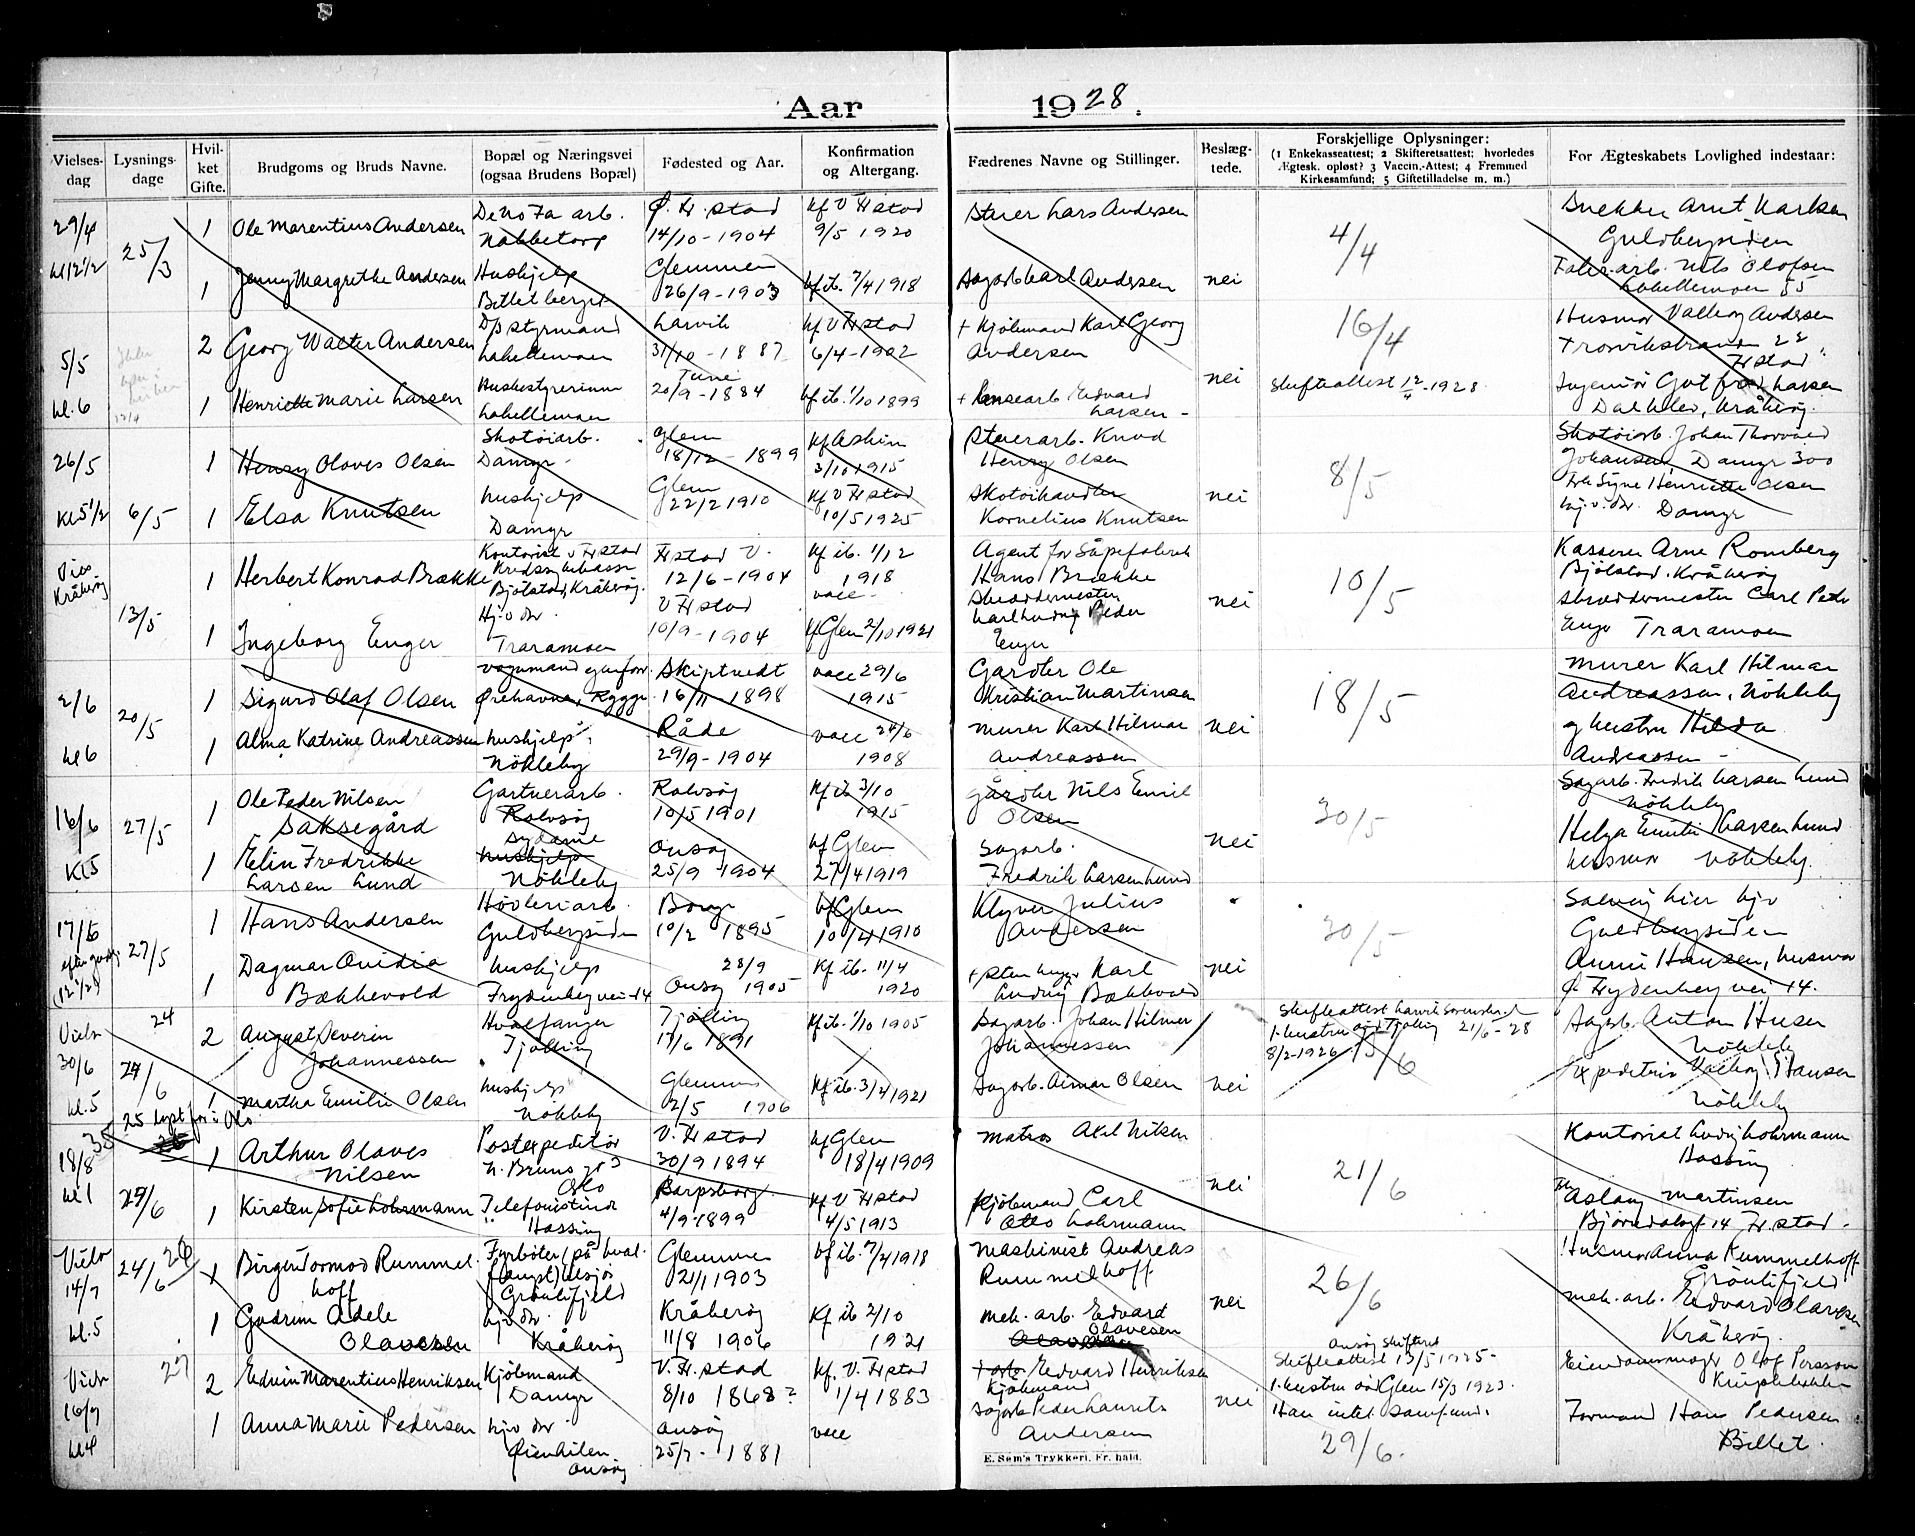 Aar 1928.
Vielses-dag
Lysnings-dage
Hvil-ket Gifte.
Brudgoms og Bruds Navne.
Bopæl og Næringsvei (ogsaa Brudens Bopæl)
Fødested og Aar.
Konfirmation og Altergang.
Fædrenes Navne og Stillinger.
Beslæg-tede.
Forskjellige Oplysninger:
(1 Enkekasseattest; 2 Skifteretsattest; hvorledes Ægtesk. opløst? 3 Vaccin.-Attest; 4 Fremmed Kirkesamfund; 5 Giftetilladelse m. m.)
For Ægteskabets Lovlighed indestaar:
29/4 25/3 1 Ole Marentius Andersen
De No Fa arb. Nabbetorp
Ø. Fr. stad 14/10-1904
kf V Fr stad 9/5 1920
Lars Andersen
4/4
Snekker Arnt Karlsen
Guldbergsiden
kl 12 1/2 1 Jenny Margrethe Andersen
Hushjelp
Glemmen 26/9-1903
kf ib. 7/4 1918
Sagarb Karl Andersen
nei
Nils Olofsen
Labellemoen 55
5/5 2 Georg Walter Andersen
D/s styrmand Labellemoen
Larvik 31/10-1887
kf V Fr stad 6/4-1902
+ Kjøbmand Karl Georg Andersen
16/4
Husmor Valborg Andersen
Trosvikstranden 22
Fr stad
kl. 6 1 Henriette Marie Larsen
Husbestyrerinne Labellemoen
Tune 20/9-1884
kf ib. 1/10 1899
Edvard Larsen -
nei
Skifteattest 12/4-1928
Ingeniør Gotfred Larsen
Kråkerøy.
26/5 1 Henry Olaves Olsen
Skotøiarb. Damyr
Glem 18/12-1899
kf Askim 3/10 1915
Knud Henry Olsen
8/5
Skotøiarb. Johan Thorvald
Johansen, Damyr 300
Kl 5 1/2 6/5 1 Elsa Knutsen
hushjelp Damyr
Glem 22/2 1910
kf V Fr stad 10/5 1925
Skotøihandler Kornelius Knutsen
nei
Signe Henriette Olsen
Damyr
Vies Kråkerøy
13/5 1 Herbert Konrad Brække
Kontorist v Fr stad
Bjølstad, Kråkerøy.
Fr stad V. 12/6-1904
kf ib. 1/12 1918
vacc-
Agent for Såpefabrik
Hans Brække
10/5
Kasserer Arne Romberg
Bjølstad. Kråkerøy
1 Ingeborg Enger
Hj. v dr
Traramoen
V Fr stad 10/9-1904
kf Glem 2/10 1921
Skræddermester
Peder
Enger
nei
Skræddermester Carl Peder
Enger Traramoen
2/6 20/5 1 Sigurd Olaf Olsen
Ørehavna, Rygge
Skiptvedt 16/11 1898
vacc 29/6 1915
Gårdbr Ole
Kristian Martinsen
18/5
Murer Karl Hilmar
Andreassen, Nøkleby
kl 6 1 Alma Katrine Andreassen
hushjelp, Nøkleby
Råde 29/9-1904
vacc 24/6 1908
Murer Karl Hilmar
Andreassen
nei
g hustru Hilda
Andreassen -
16/6 27/5 1 Ole Peder Nilsen
Saksegård
Gartnerarb. Rolvsøy
Rolvsøy 10/5 1901
kf ib 3/10 1915
gårdbr Nils Emil
Olsen
30/5
Sagarb. Fredrik Larsen Lund
Nøkleby
Kl 5 1 Elin Fredrikke
Larsen Lund
sydame
hushjelp
Nøkleby
Onsøy 25/9-1904
kf Glem 27/4 1919
Sagarb.
Fredrik Larsen Lund
nei
Helga Emilie Larsen Lund
husmor Nøkleby.
17/6 27/5 1 Hans Andersen
Høvleriarb. Guldbergsiden
Borge 10/2 1895
kf Glem 10/4 1910
Klyver Julius
Andersen
30/5
Guldbergsiden
(12 1/2) 1 Dagmar Ovidia
Bækkevold
hushjelp
Frydenbergvei 14
28/9
Onsøy 1905
kf ib. 11/4 1920
Karl
Ludvig Bækkevold
nei
Anni Hansen, husmor
Frydenberg vei 14.
Vielse 30/6 24 2 August Severin
Johannessen
Hvalfanger
Tjølling
Tjølling 17/6 1891
kf ib. 1/10 1905
Sagarb. Johan Hilmer
Johannessen
Skifteattest Larvik
1. hustru død Tjølling 21/6-28
8/2-1926
15/6
Sagarb. Anton Husen
Nøkleby
kl. 5 24/6 1 Martha Emilie Olsen
hushjelp Nøkleby
Glemmen 2/5 1906
kf ib. 3/4 1921
Sagarb. Aimar Olsen
nei
Expeditrise Valborg Hansen
Nøkleby
25 Lyst for i Oslo
18/8 1 Arthur Olaves
Nilsen
Postexpeditør
Oslo
V. Fr stad 30/9 1894
kf Glem 18/4 1909
Matros Axel Nilsen
21/6
Kontorist Ludvig Lohrmann
Hassing
kl 1 1 Kirsten Sofie Lohrmann
Telefonistinde
Hassing
Sarpsborg 4/9-1899
kf V Fr stad 4/5 1913
Kjøbmand Carl
Otto Lohrmann
nei
Aslaug Martinsen
Fr stad.
Vielse 14/7 24/6 1 Birger Tormod Rummel
hoff
Fyrbøter (på hval-
Glemmen 21/1 1903
kf ib. 7/4 1918
Maskinist Andreas
Rummelhoff
26/6
Husmor Anna Rummelhoff
kl. 5 1 Gudrun Adele
Olavesen
hj. v dr.
Kråkerøy
Kråkerøy 11/8 1906
kf ib 2/10 1921
mek. arb. Edvard
Olavesen
nei
mek. arb. Edvard Olavesen
Kråkerøy.
Vielse 16/7 27 2 Edvin Marentius Henriksen
Kjøbmand
Damyr
V. Fr. stad 8/10 1868?
kf. V. Fr stad 1/4 1883
Edvard Henriksen
Kjøbmand
Onsøy Skifteret
Skifteattest 13/5 1925-
1. hustru død Glem 15/3 1923.
Olof Persson
kl 4 1 Anna Marie Pedersen
hj. v dr.
Onsøy
Onsøy 25/7-1881
vacc
Sagarb Peder Laurits
Andersen
nei
Han intet samfund.
29/6.
Formand Hans Pedersen
Billet.
E. Sem's Trykkeri, Fr. hald.